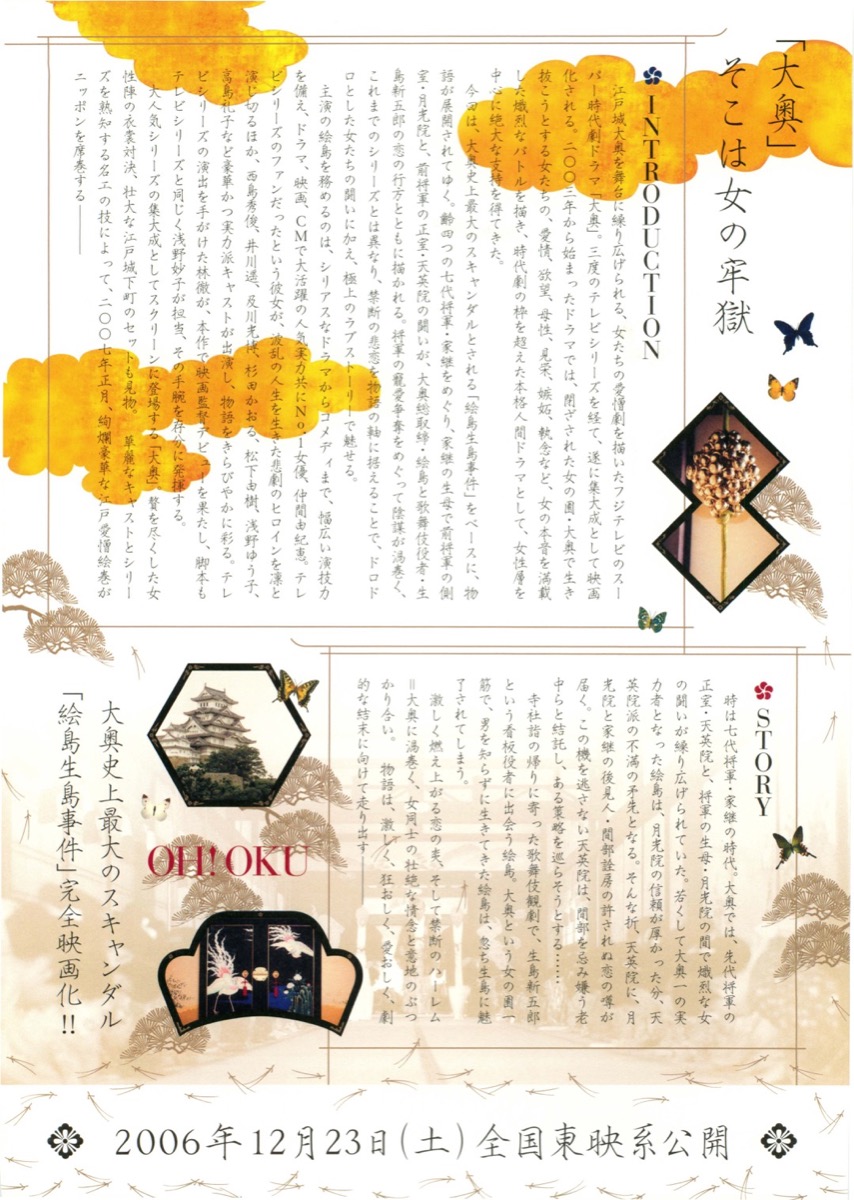 「大奥」
そこは女の牢獄
INTRODUCTION
江戸城大奥を舞台に繰り広げられる、女たちの愛憎劇を描いたフジテレビのスー
パー時代劇ドラマ「大奥」。三度のテレビシリーズを経て、遂に集大成として映画
化される。二〇〇三年から始まったドラマでは、閉ざされた女の園・大奥で生き
抜こうとする女たちの、愛情、欲望、母性、見栄、嫉妬、執念など、女の本音を満載
した熾烈なバトルを描き、時代劇の枠を超えた本格人間ドラマとして、女性層を
中心に絶大な支持を得てきた。
今回は、大奥史上最大のスキャンダルとされる「絵島生島事件」をベースに、物
語が展開されてゆく。齢四つの七代将軍・家継をめぐり、家継の生母で前将軍の側
室・月光院と、前将軍の正室・天英院の闘いが、大奥総取締・絵島と歌舞伎役者・生
島新五郎の恋の行方とともに描かれる。将軍の寵愛争奪をめぐって陰謀が渦巻く、
これまでのシリーズとは異なり、禁断の悲恋を物語の軸に据えることで、ドロド
ロとした女たちの闘いに加え、極上のラブストーリーで魅せる。
主演の絵島を務めるのは、シリアスなドラマからコメディまで、幅広い演技力
を備え、ドラマ、映画、CMで大活躍の人気実力共にNo.1女優、仲間由紀恵。テレ
ビシリーズのファンだったという彼女が、波乱の人生を生きた悲劇のヒロインを凛と
演じ切るほか、西島秀俊、井川遥、及川光博、杉田かおる、松下由樹、浅野ゆう子、
高島礼子など豪華かつ実力派キャストが出演し、物語をきらびやかに彩る。テレ
ビシリーズの演出を手がけた林徹が、本作で映画監督デビューを果たし、脚本も
テレビシリーズと同じく浅野妙子が担当、その手腕を存分に発揮する。
大人気シリーズの集大成としてスクリーンに登場する「大奥」。贅を尽くした女
性陣の衣裳対決、壮大な江戸城下町のセットも見物。 華麗なキャストとシリー
ズを熟知する名工の技によって、二〇〇七年正月、絢爛豪華な江戸愛憎絵巻が
ニッポンを席巻する――
STORY
時は七代将軍・家継の時代。大奥では、先代将軍の
正室・天英院と、将軍の生母・月光院の間で熾烈な女
の闘いが繰り広げられていた。若くして大奥一の実
力者となった絵島は、月光院の信頼が厚かった分、天
英院派の不満の矛先となる。そんな折、天英院に、月
光院と家継の後見人・間部詮房の許されぬ恋の噂が
届く。この機を逃さない天英院は、間部を忌み嫌う老
中らと結託し、ある策略を巡らそうとする……
寺社詣の帰りに寄った歌舞伎観劇で、生島新五郎
という看板役者に出会う絵島。大奥という女の園一
筋で、男を知らずに生きてきた絵島は、忽ち生島に魅
了されてしまう。
激しく燃え上がる恋の炎、そして禁断のハーレム
=大奥に渦巻く、女同士の壮絶な情念と意地のぶつ
かり合い。 物語は、激しく、狂おしく、愛おしく、劇
的な結末に向けて走り出す――
OH! OKU
大奥史上最大のスキャンダル
「絵島生島事件」完全映画化!!
2006年12月23日(土)全国東映系公開